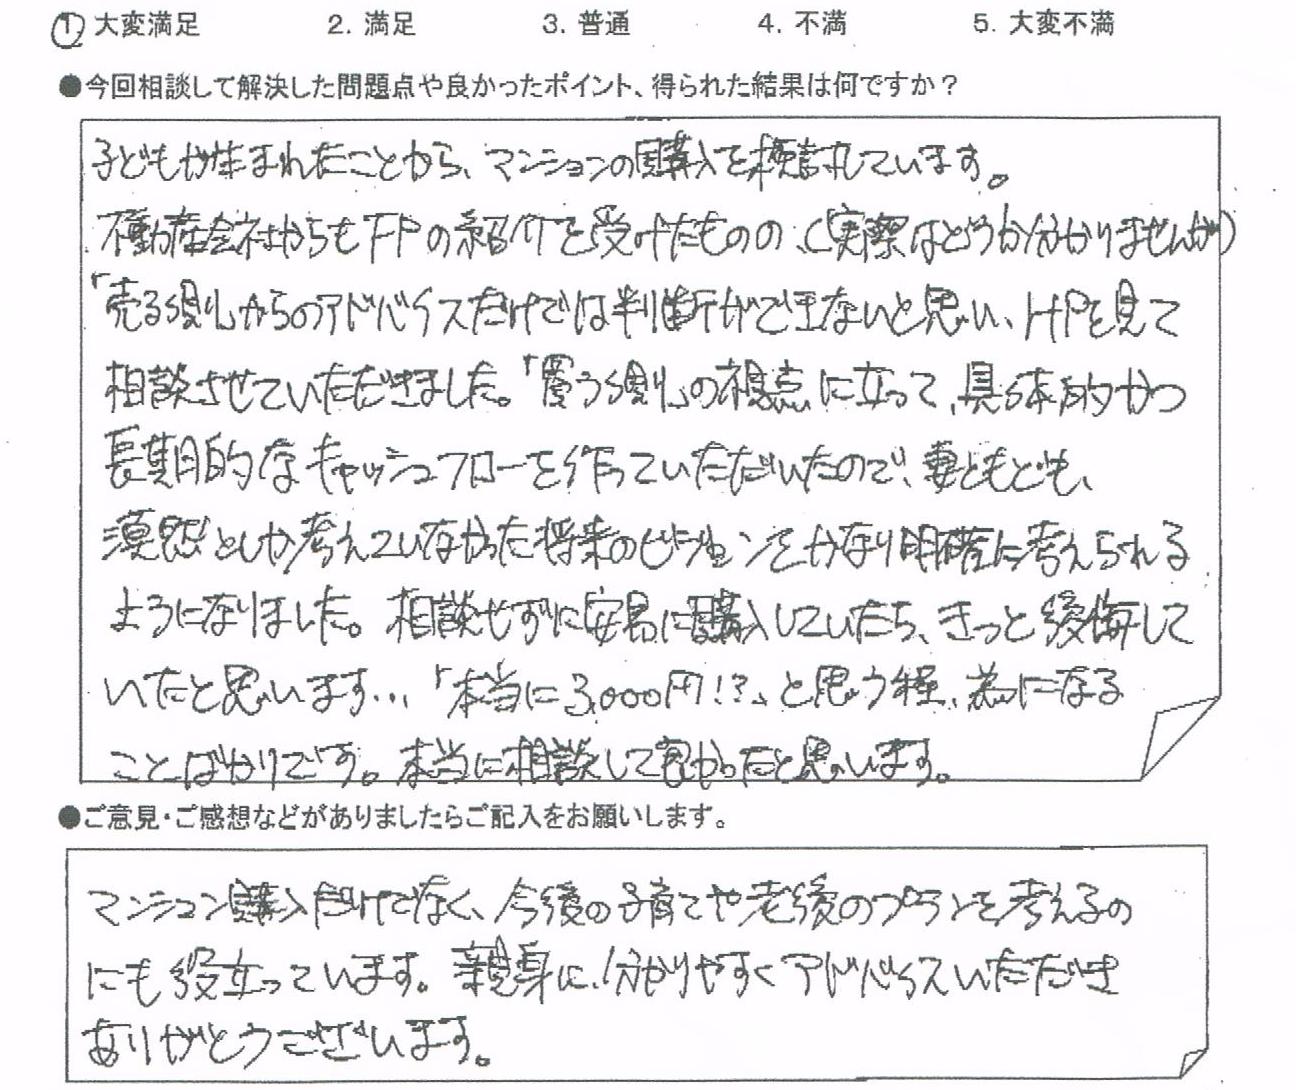 ① 大変満足 2. 満足 3. 普通 4. 不満 5. 大変不満
●今回相談して解決した問題点や良かったポイント、得られた結果は何ですか？
子どもが生まれたことから、マンションの購入を検討しています。
不動産会社からもFPの紹介を受けたものの、(実際はどうか分かりませんが)
「売る側」からのアドバイスだけでは判断ができないと思い、HPを見て
相談させていただきました。「買う側」の視点に立って、具体的かつ
長期的なキャッシュフローを作っていただいたので、妻ともども、
漠然としか考えていなかった将来のビジョンをかなり明確に考えられる
ようになりました。相談せずに安易に購入していたら、きっと後悔して
いたと思います…「本当に3,000円!?」と思う程、為になる
ことばかりです。本当に相談して良かったと思います。
●ご意見・ご感想などがありましたらご記入をお願いします。
マンション購入だけでなく、今後の子育てや老後のプランを考えるの
にも役立っています。親身に、分かりやすくアドバイスいただき
ありがとうございます。